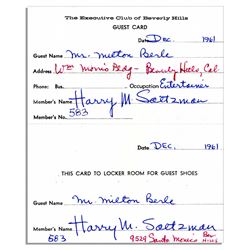 The Executive Club of Beverly Hills
GUEST CARD
Date Dec. 1961
Guest Name Mr. Milton Berle
Address Wm Morris Bldg - Beverly Hills, Cal
Phone: Bus. Occupation Entertainer
Member's Name Harry M. Saltzman
Member's No.
583
Date DEC. 1961
THIS CARD TO LOCKER ROOM FOR GUEST SHOES
Guest Name Mr. Milton Berle
Member's Name Harry M. Saltzman
583 9529 Santa Monica Bev Hills